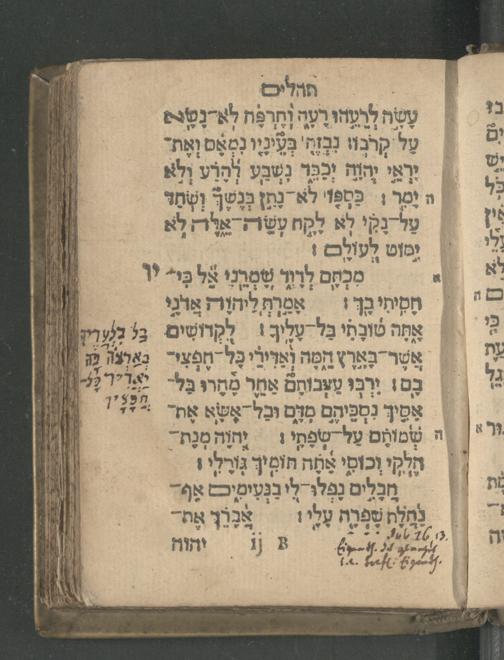 תהלים
עֹשָׂה לְרֵעֵהוּ רָעָה וְחֶרְפָּה לֹא־נָשָׂא
עַל קְרֹבוֹ׃ נִבְזֶה בְּעֵינָיו נִמְאָם וְאֶת־
יִרְאֵי יְהוָֹה יְכַבֵּד נִשְׁבַּע לְהָרַע וְלֹא
ה
יָמִר׃ כַּסְפּוֹ לֹא־נָתַן בְּנֶשֶׁךְ וְשֹׁחַד
עַל־נָקִי לֹא לָקָח עֹשֵׂה־אֵלֶּה לֹא
יִמּוֹט לְעוֹלָם׃
יו
א
מִכְתָּם לְדָוִד שָׁמְרֵנִי אֵל כִּי־
חָסִיתִי בָךְ׃ אָמַרְתְּ לַיהוָה אֲדֹנָי
אָתָּה טוֹבָתִי בַּל־עָלֶיךָ׃ לִקְדוֹשִׁים
אֲשֶׁר־בָּאָרֶץ הֵמָּה וְאַדִּירֵי כָּל־חֶפְצִי־
בָם׃ יִרְבּוּ עַצְּבוֹתָם אַחֵר מָהָרוּ בַּל־
אַסִּיךְ נִסְכֵּיהֶם מִדָּם וּבַל־אֶשָּׂא אֶת־
ה
שְׁמוֹתָם עַל־שְׂפָתָי׃ יְהוָֹה מְנָת־
חֶלְקִי וְכוֹסִי אַתָּה תּוֹמִיךְ גּוֹרָלִי׃
חֲבָלִים נָפְלוּ־לִי בַּנְּעִימִים אַף־
נַחֲלָת שָׁפְרָה עָלָי׃ אֲבָרֵךְ אֶת־
B ij
יהוה
בל בלעדיך
16. 13.